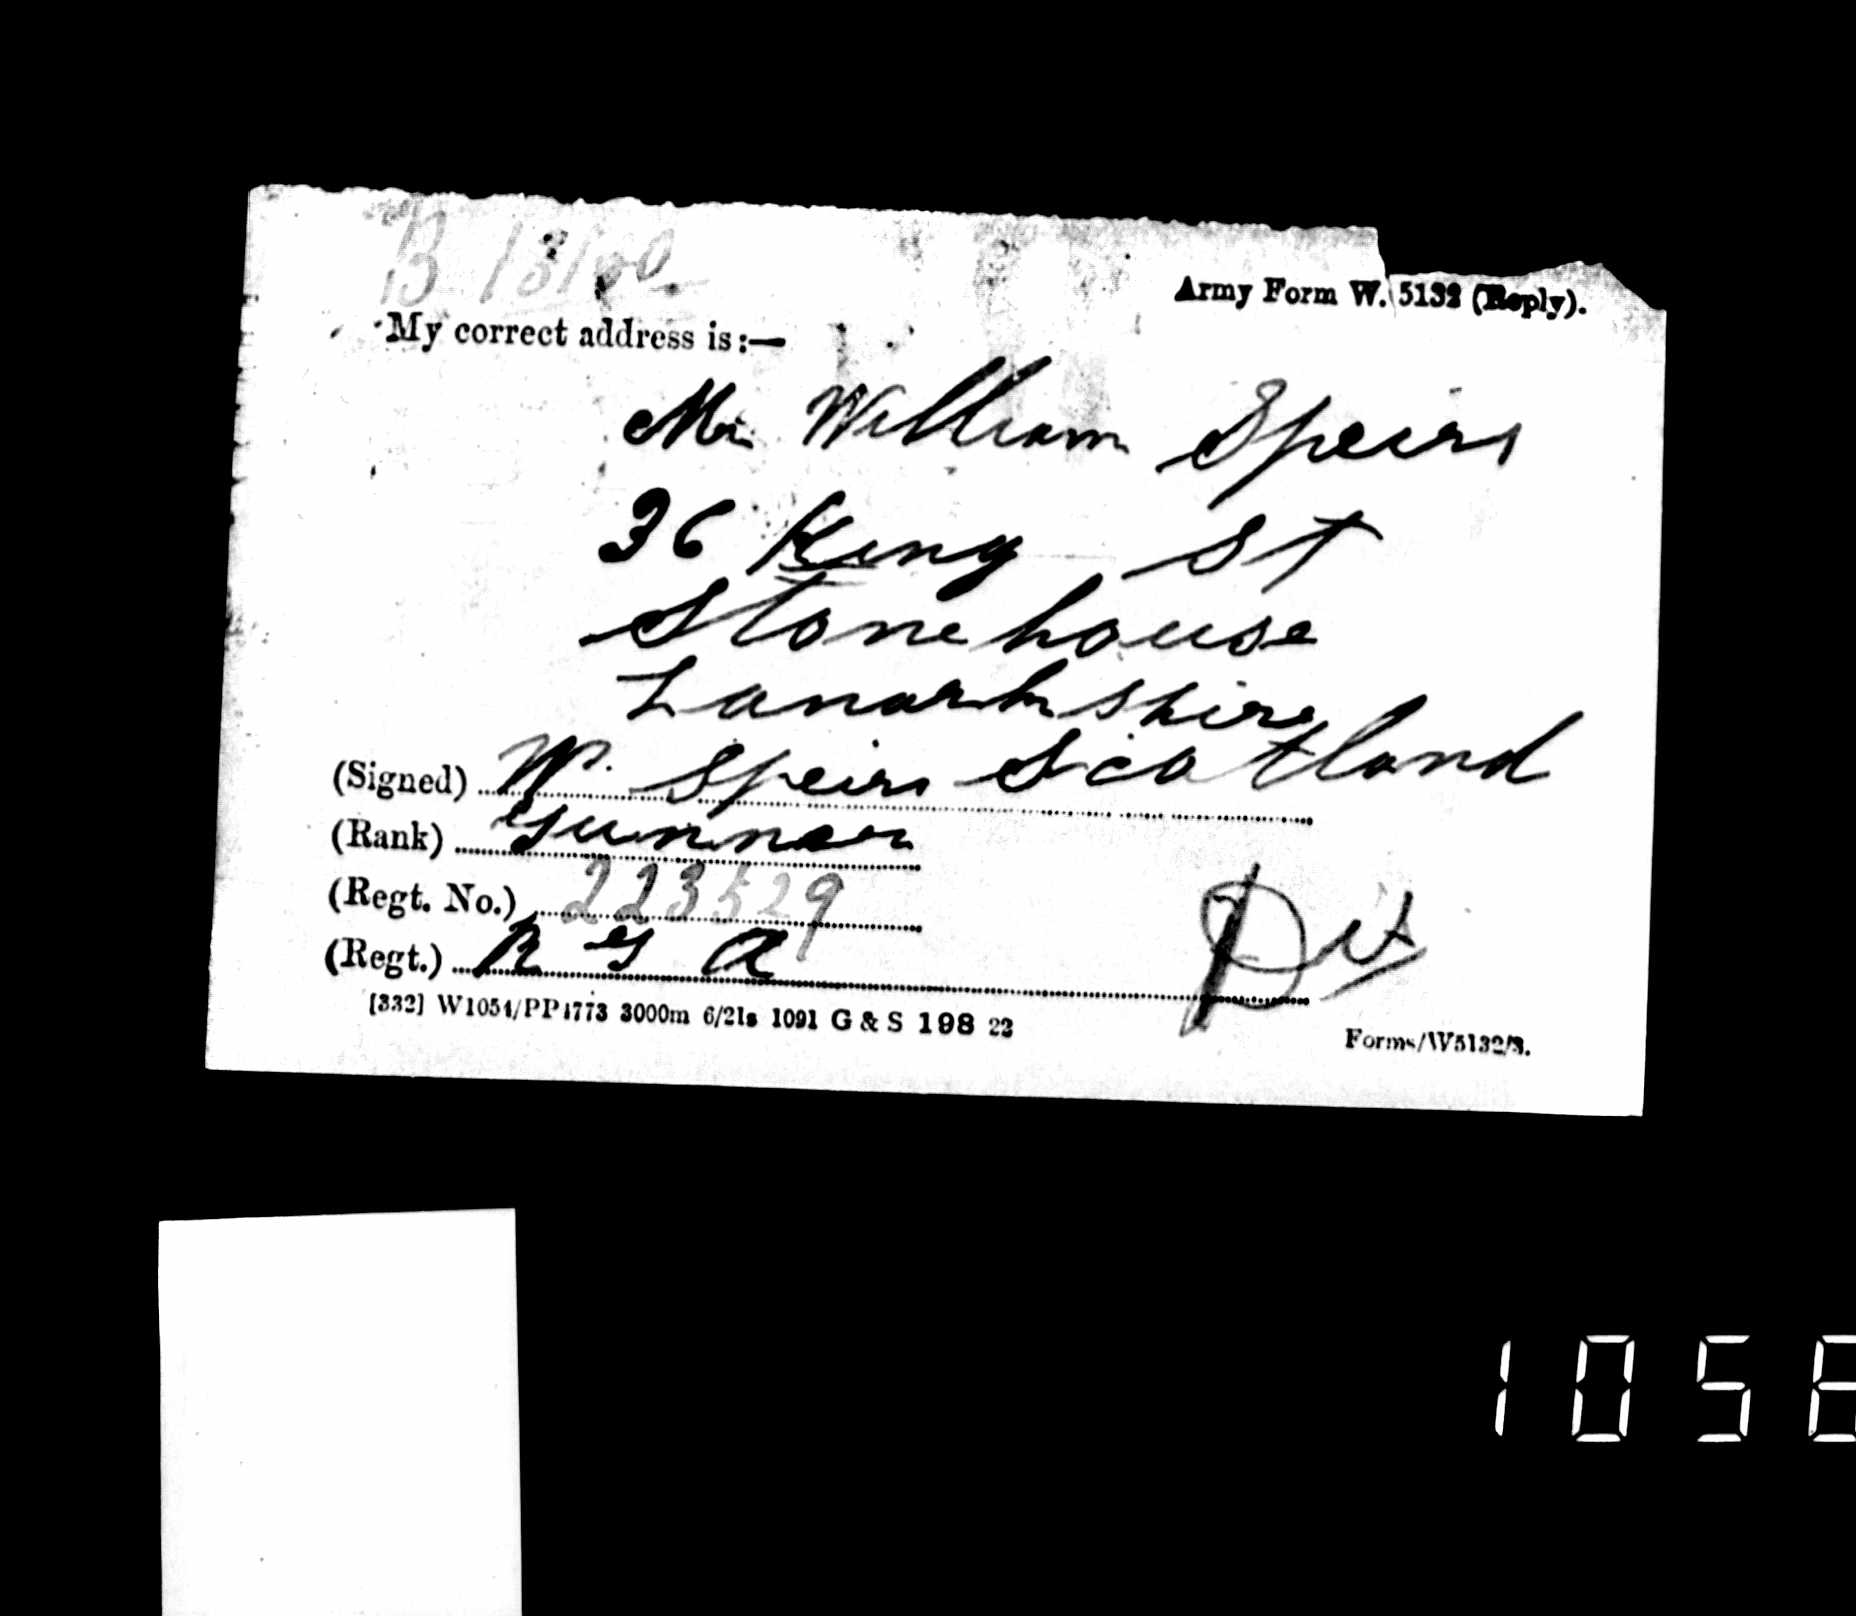 Army Form W. 5132 (Reply).
My correct address is:—
Mr William Speirs
36 King St
Stonehouse
Lanarkshire
Scotland
(Signed) W. Speirs
(Rank) Gunner
(Regt. No.) 223529
(Regt.) R G A
[332] W1054/PP1773 3000m 6/21s 1091 G & S 198 22
Forms/W5132/3.
105